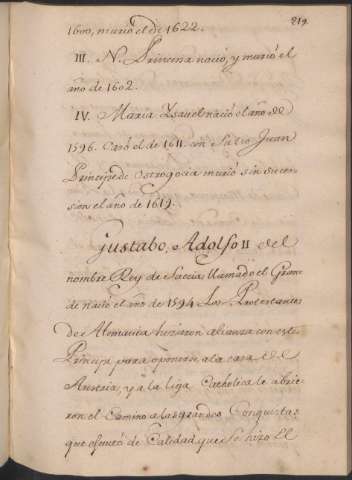 219
1600, murió el de 1622.
III. N. Princesa nació, y murió el
año de 1602.
IV. Maria Ysavel nació el año de
1596. Casó el de 1611. con Juan
Principe de Ostrogocia murió sin succes-
sion el año de 1619.
Gustabo, Adolfo II del
nombre Rey de Suecia llamado el Gran-
de nació el año de 1594 Los Protestantes
de Alemania hicieron alianza con este
Principe para oponerse a la casa de
Austria, y a la liga Catholica le abrie-
ron el Camino a las grandes Conquistas
que efectuó de Calidad que se hizo El